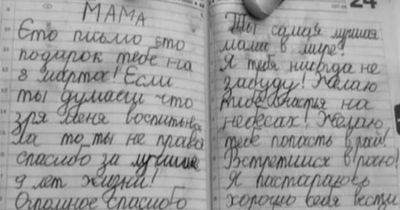 МАМА
Єто письмо єто
подарок тебе на
8 марта! Если
ты думаеш что
зря меня воспитыва
ла то ты не права
спасибо за лучшие
9 лет жизни!
Огромное спасибо
24
Ты самая лучшая
мама в мире!
Я тебя никогда не
забуду! Желаю
тебе счастья на
небесах! Желаю
тебе попасть в рай!
Встретимся в раю!
Я пастараюсь
хорошо себя вести